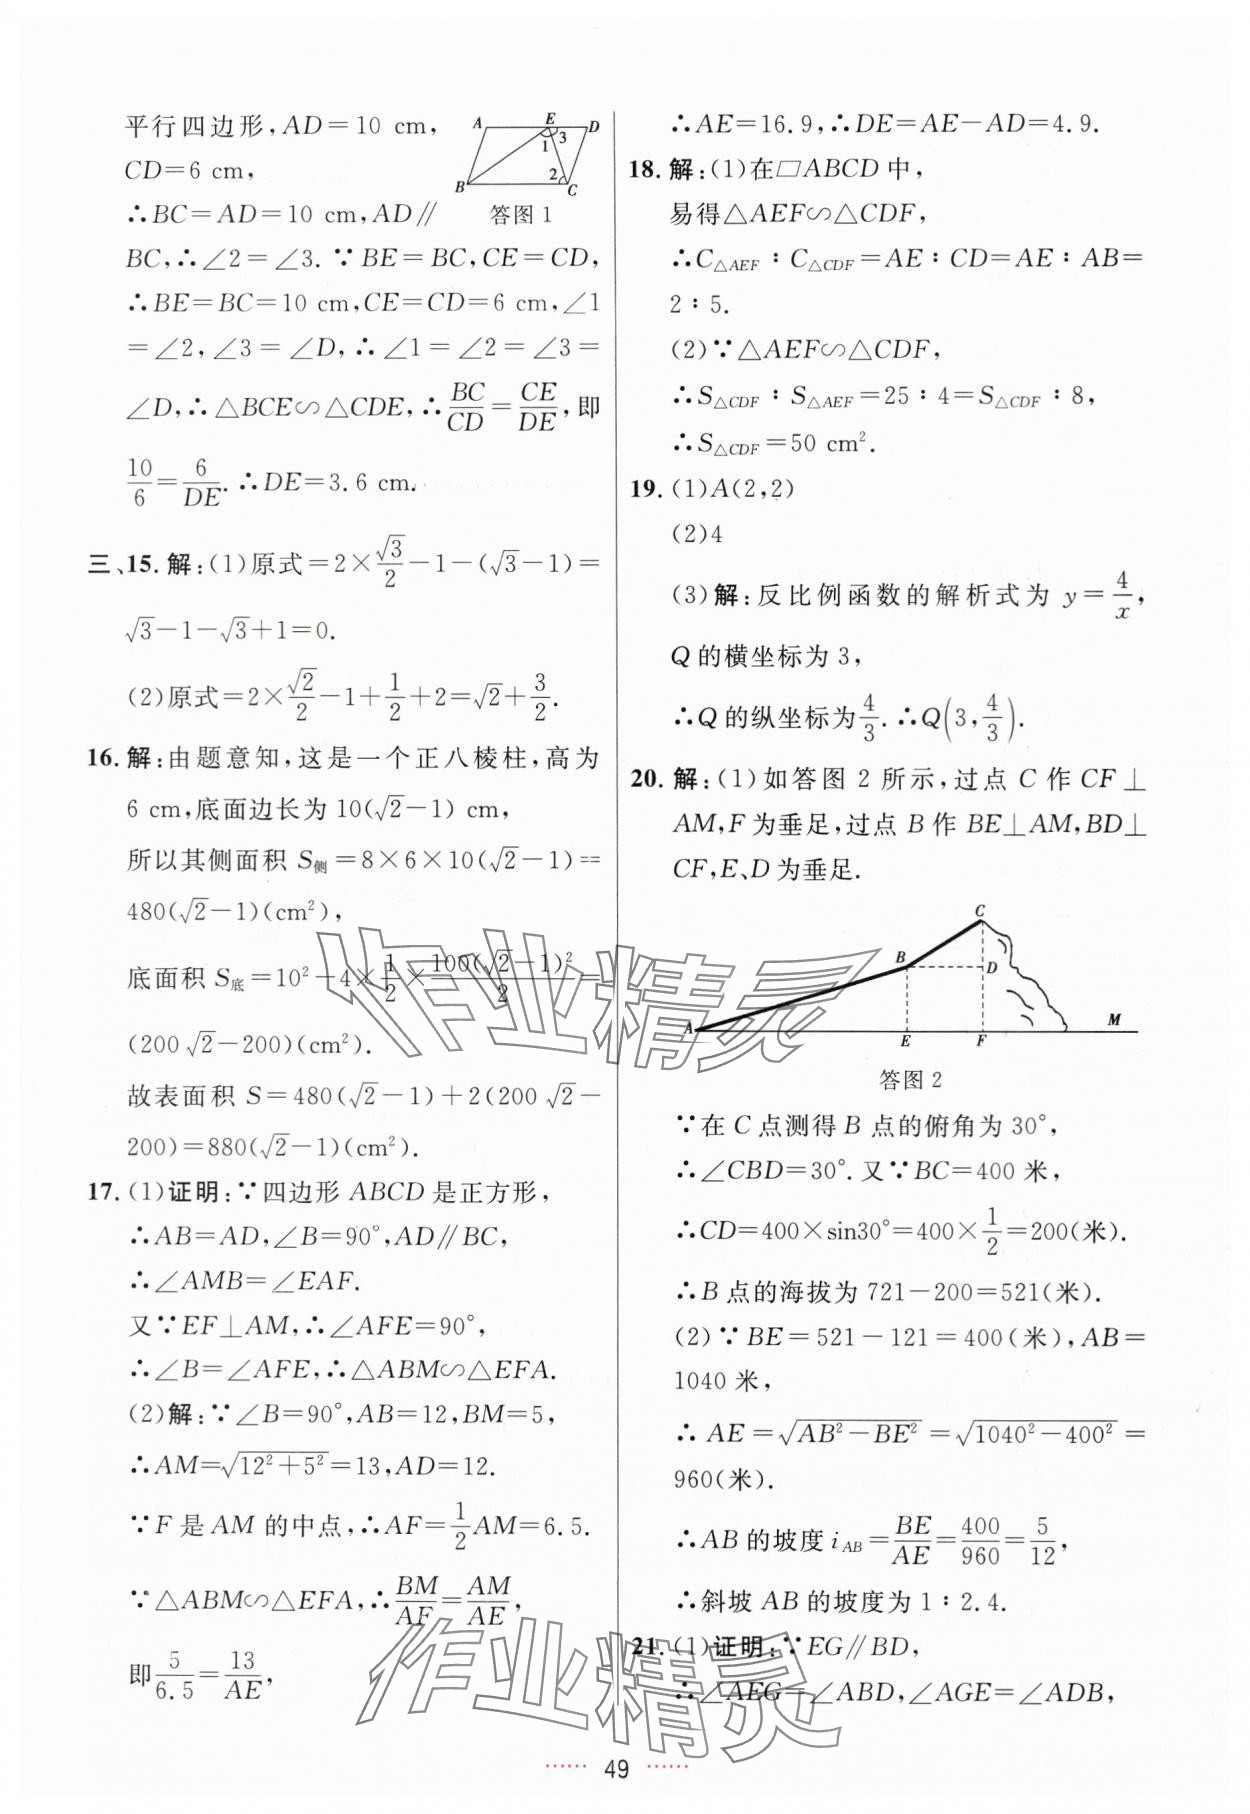 平行四边形,AD=10 cm,
CD=6 cm,
∴BC=AD=10 cm,AD∥
BC,∴∠2=∠3.∵BE=BC,CE=CD,
∴BE=BC=10 cm,CE=CD=6 cm,∠1
=∠2,∠3=∠D,∴∠1=∠2=∠3=
∠D,∴△BCE∽△CDE,∴BC/CD=CE/DE,即
10/6=6/DE.∴DE=3.6 cm.
A E D 1 3 2 B C
答图 1
三、15.解:(1)原式=2×√3/2-1-(√3-1)=
√3-1-√3+1=0.
(2)原式=2×√2/2-1+1/2+2=√2+3/2.
16.解:由题意知,这是一个正八棱柱,高为
6 cm,底面边长为 10(√2-1) cm,
所以其侧面积 S侧=8×6×10(√2-1)=
480(√2-1)(cm²),
底面积 S底=10²-4×1/2×100(√2-1)²/2=
(200√2-200)(cm²).
故表面积 S=480(√2-1)+2(200√2-
200)=880(√2-1)(cm²).
17.(1)证明:∵四边形 ABCD 是正方形,
∴AB=AD,∠B=90°,AD∥BC,
∴∠AMB=∠EAF.
又∵EF⊥AM,∴∠AFE=90°,
∴∠B=∠AFE,∴△ABM∽△EFA.
(2)解:∵∠B=90°,AB=12,BM=5,
∴AM=√(12²+5²)=13,AD=12.
∵F 是 AM 的中点,∴AF=1/2AM=6.5.
∵△ABM∽△EFA,∴BM/AF=AM/AE,
即5/6.5=13/AE,
∴AE=16.9,∴DE=AE-AD=4.9.
18.解:(1)在▱ABCD 中,
易得△AEF∽△CDF,
∴C△AEF∶C△CDF=AE∶CD=AE∶AB=
2∶5.
(2)∵△AEF∽△CDF,
∴S△CDF∶S△AEF=25∶4=S△CDF∶8,
∴S△CDF=50 cm².
19.(1)A(2,2)
(2)4
(3)解:反比例函数的解析式为 y=4/x,
Q 的横坐标为 3,
∴Q 的纵坐标为4/3.∴Q(3,4/3).
20.解:(1)如答图 2 所示,过点 C 作 CF⊥
AM,F 为垂足,过点 B 作 BE⊥AM,BD⊥
CF,E、D 为垂足.
C
B D
A E F M
答图 2
∵在 C 点测得 B 点的俯角为 30°,
∴∠CBD=30°.又∵BC=400 米,
∴CD=400×sin30°=400×1/2=200(米).
∴B 点的海拔为 721-200=521(米).
(2)∵BE=521-121=400(米),AB=
1040 米,
∴AE=√(AB²-BE²)=√(1040²-400²)=
960(米).
∴AB 的坡度 iAB=BE/AE=400/960=5/12,
∴斜坡 AB 的坡度为 1∶2.4.
21.(1)证明:∵EG∥BD,
∴∠AEG=∠ABD,∠AGE=∠ADB,
作业精灵
作业精灵
49